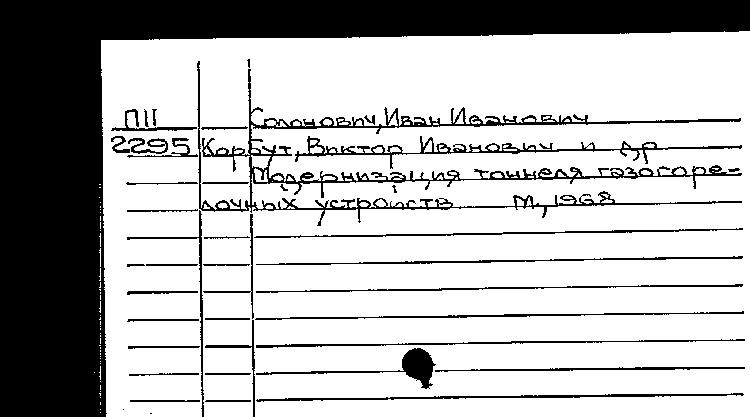 ПII Солонович, Иван Иванович
2295 Корбут, Виктор Иванович и др
Модернизация тоннеля газогоре-
лочных устройств М., 1968